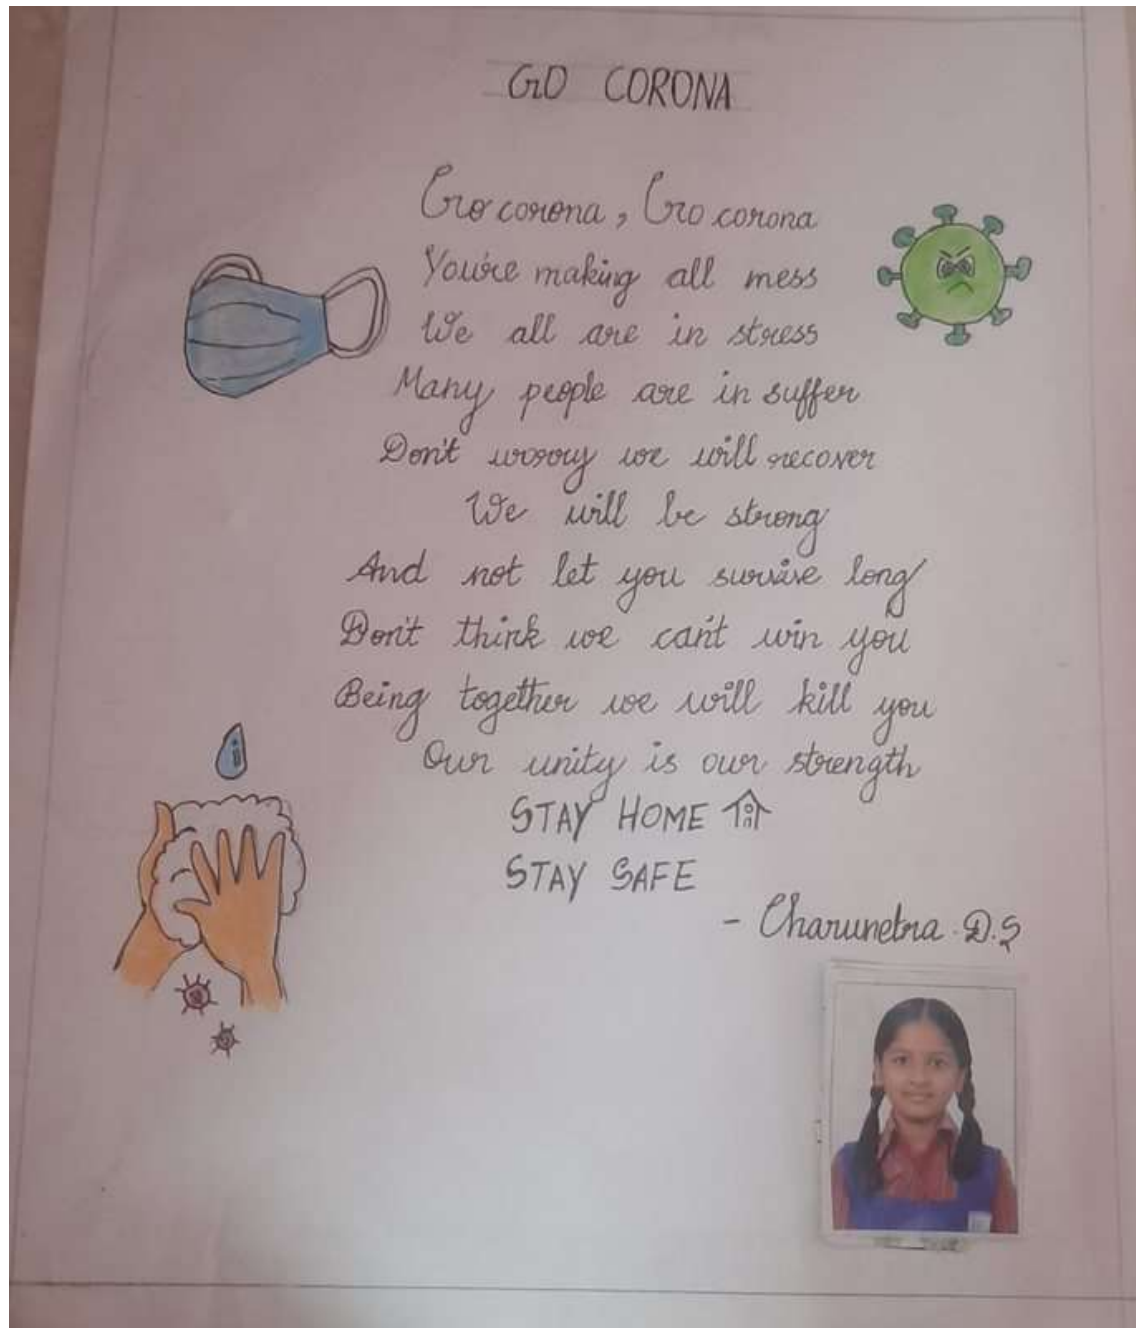 GO CORONA
Go corona, Go corona
You're making all mess
We all are in stress
Many people are in suffer
Don't worry we will recover
We will be strong
And not let you survive long
Don't think we can't win you
Being together we will kill you
Our unity is our strength
STAY HOME
STAY SAFE
- Charunetra. D.S